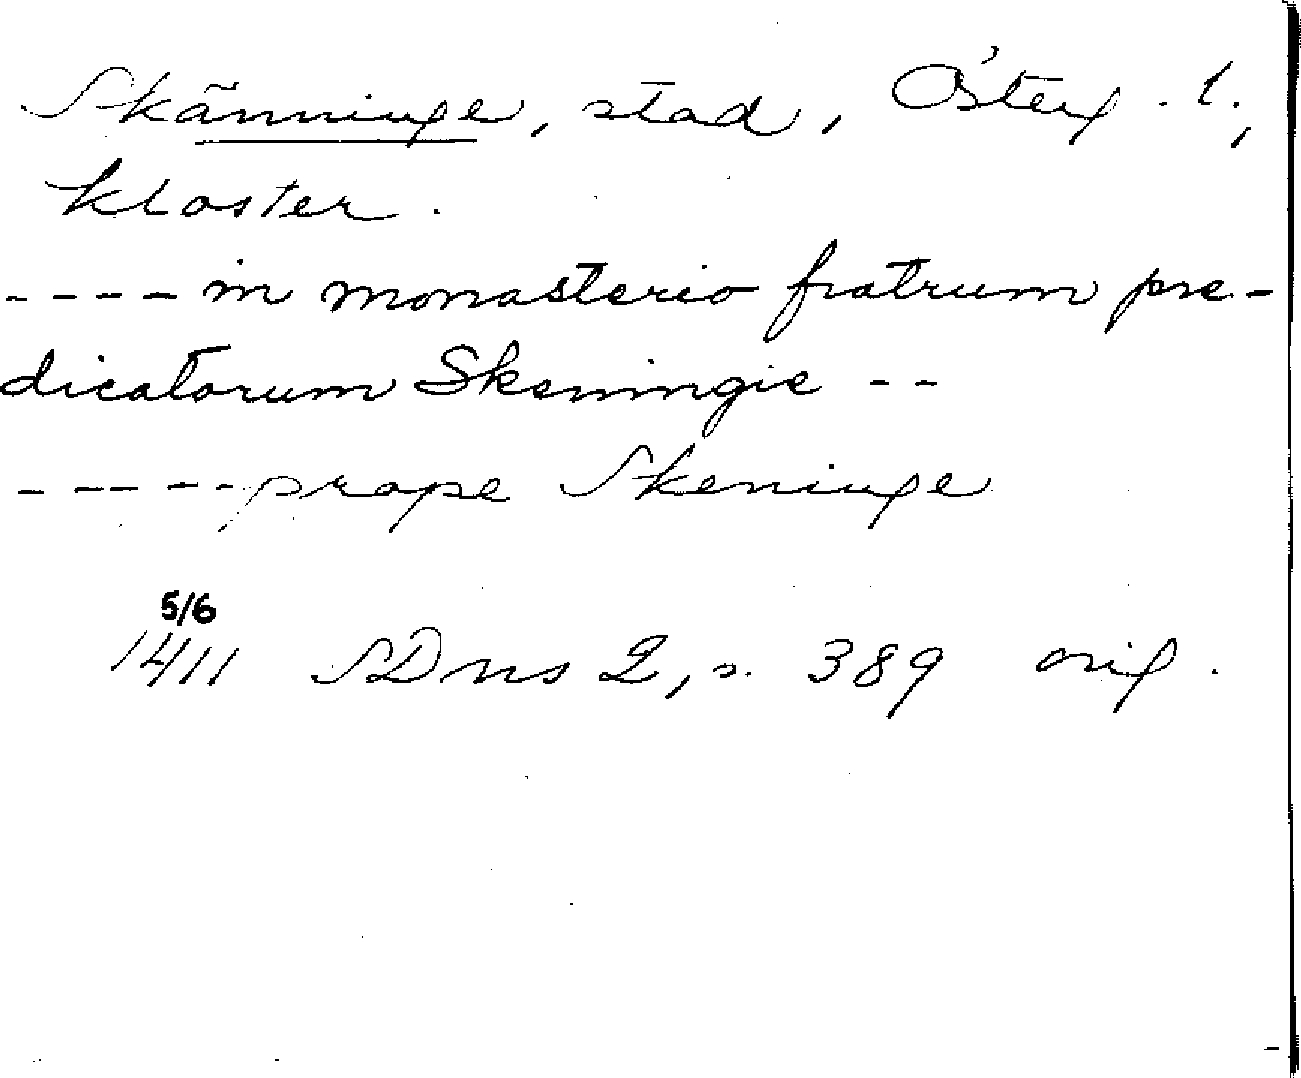 Skänninge, stad, Österg. l.,
kloster.
---- in monasterio fratrum pre-
dicatorum Skeningie --
---- prope Skeninge
5/6
1411 SDns 2, s. 389 orig.